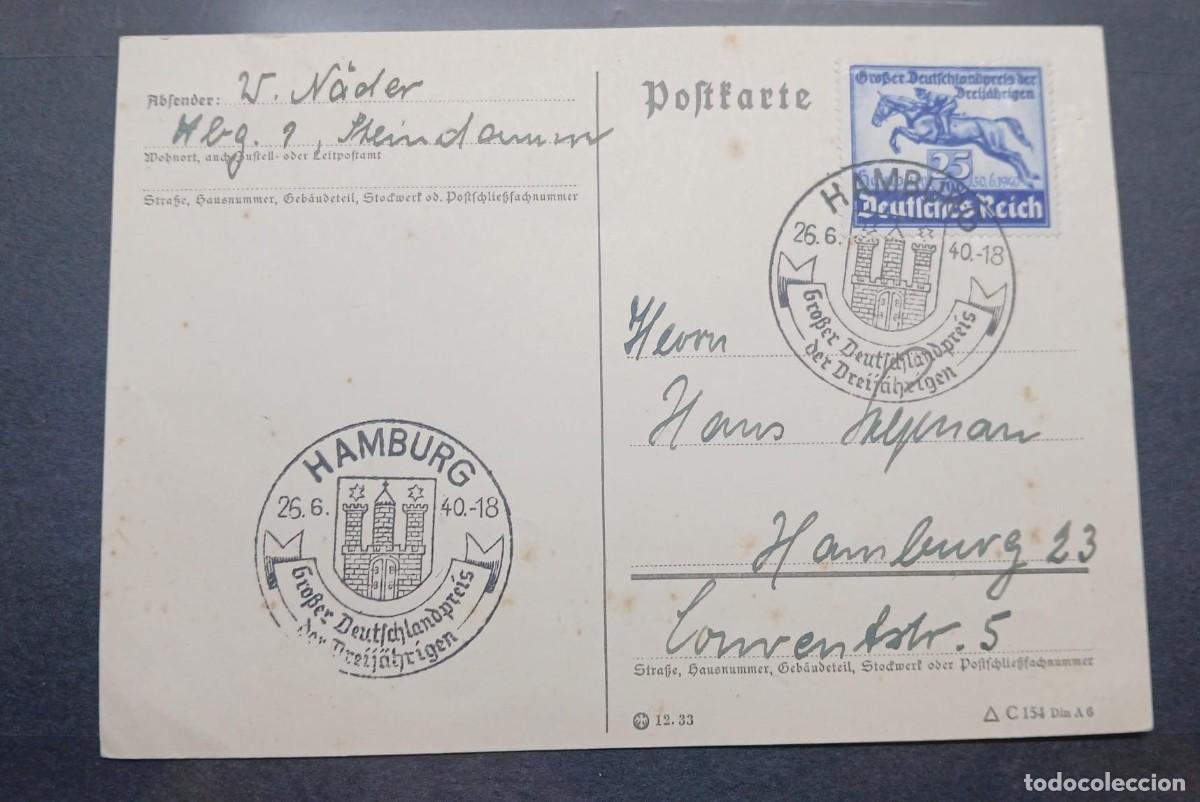 Absender: W. Näder
Hbg. 1, Steindamm
Wohnort, auch Zustell- oder Leitpostamt
Straße, Hausnummer, Gebäudeteil, Stockwerk od. Postschließfachnummer
Postkarte
Großer Deutschlandpreis der
Dreijährigen
25
30.6.1940
Deutsches Reich
HAMBURG
26.6. 40.-18
Großer Deutschlandpreis
der Dreijährigen
Herrn
Hans
Hamburg 23
Conventstr. 5
Straße, Hausnummer, Gebäudeteil, Stockwerk oder Postschließfachnummer
HAMBURG
26.6. 40.-18
Großer Deutschlandpreis
der Dreijährigen
12.33
C 154 Din A 6
todocoleccion